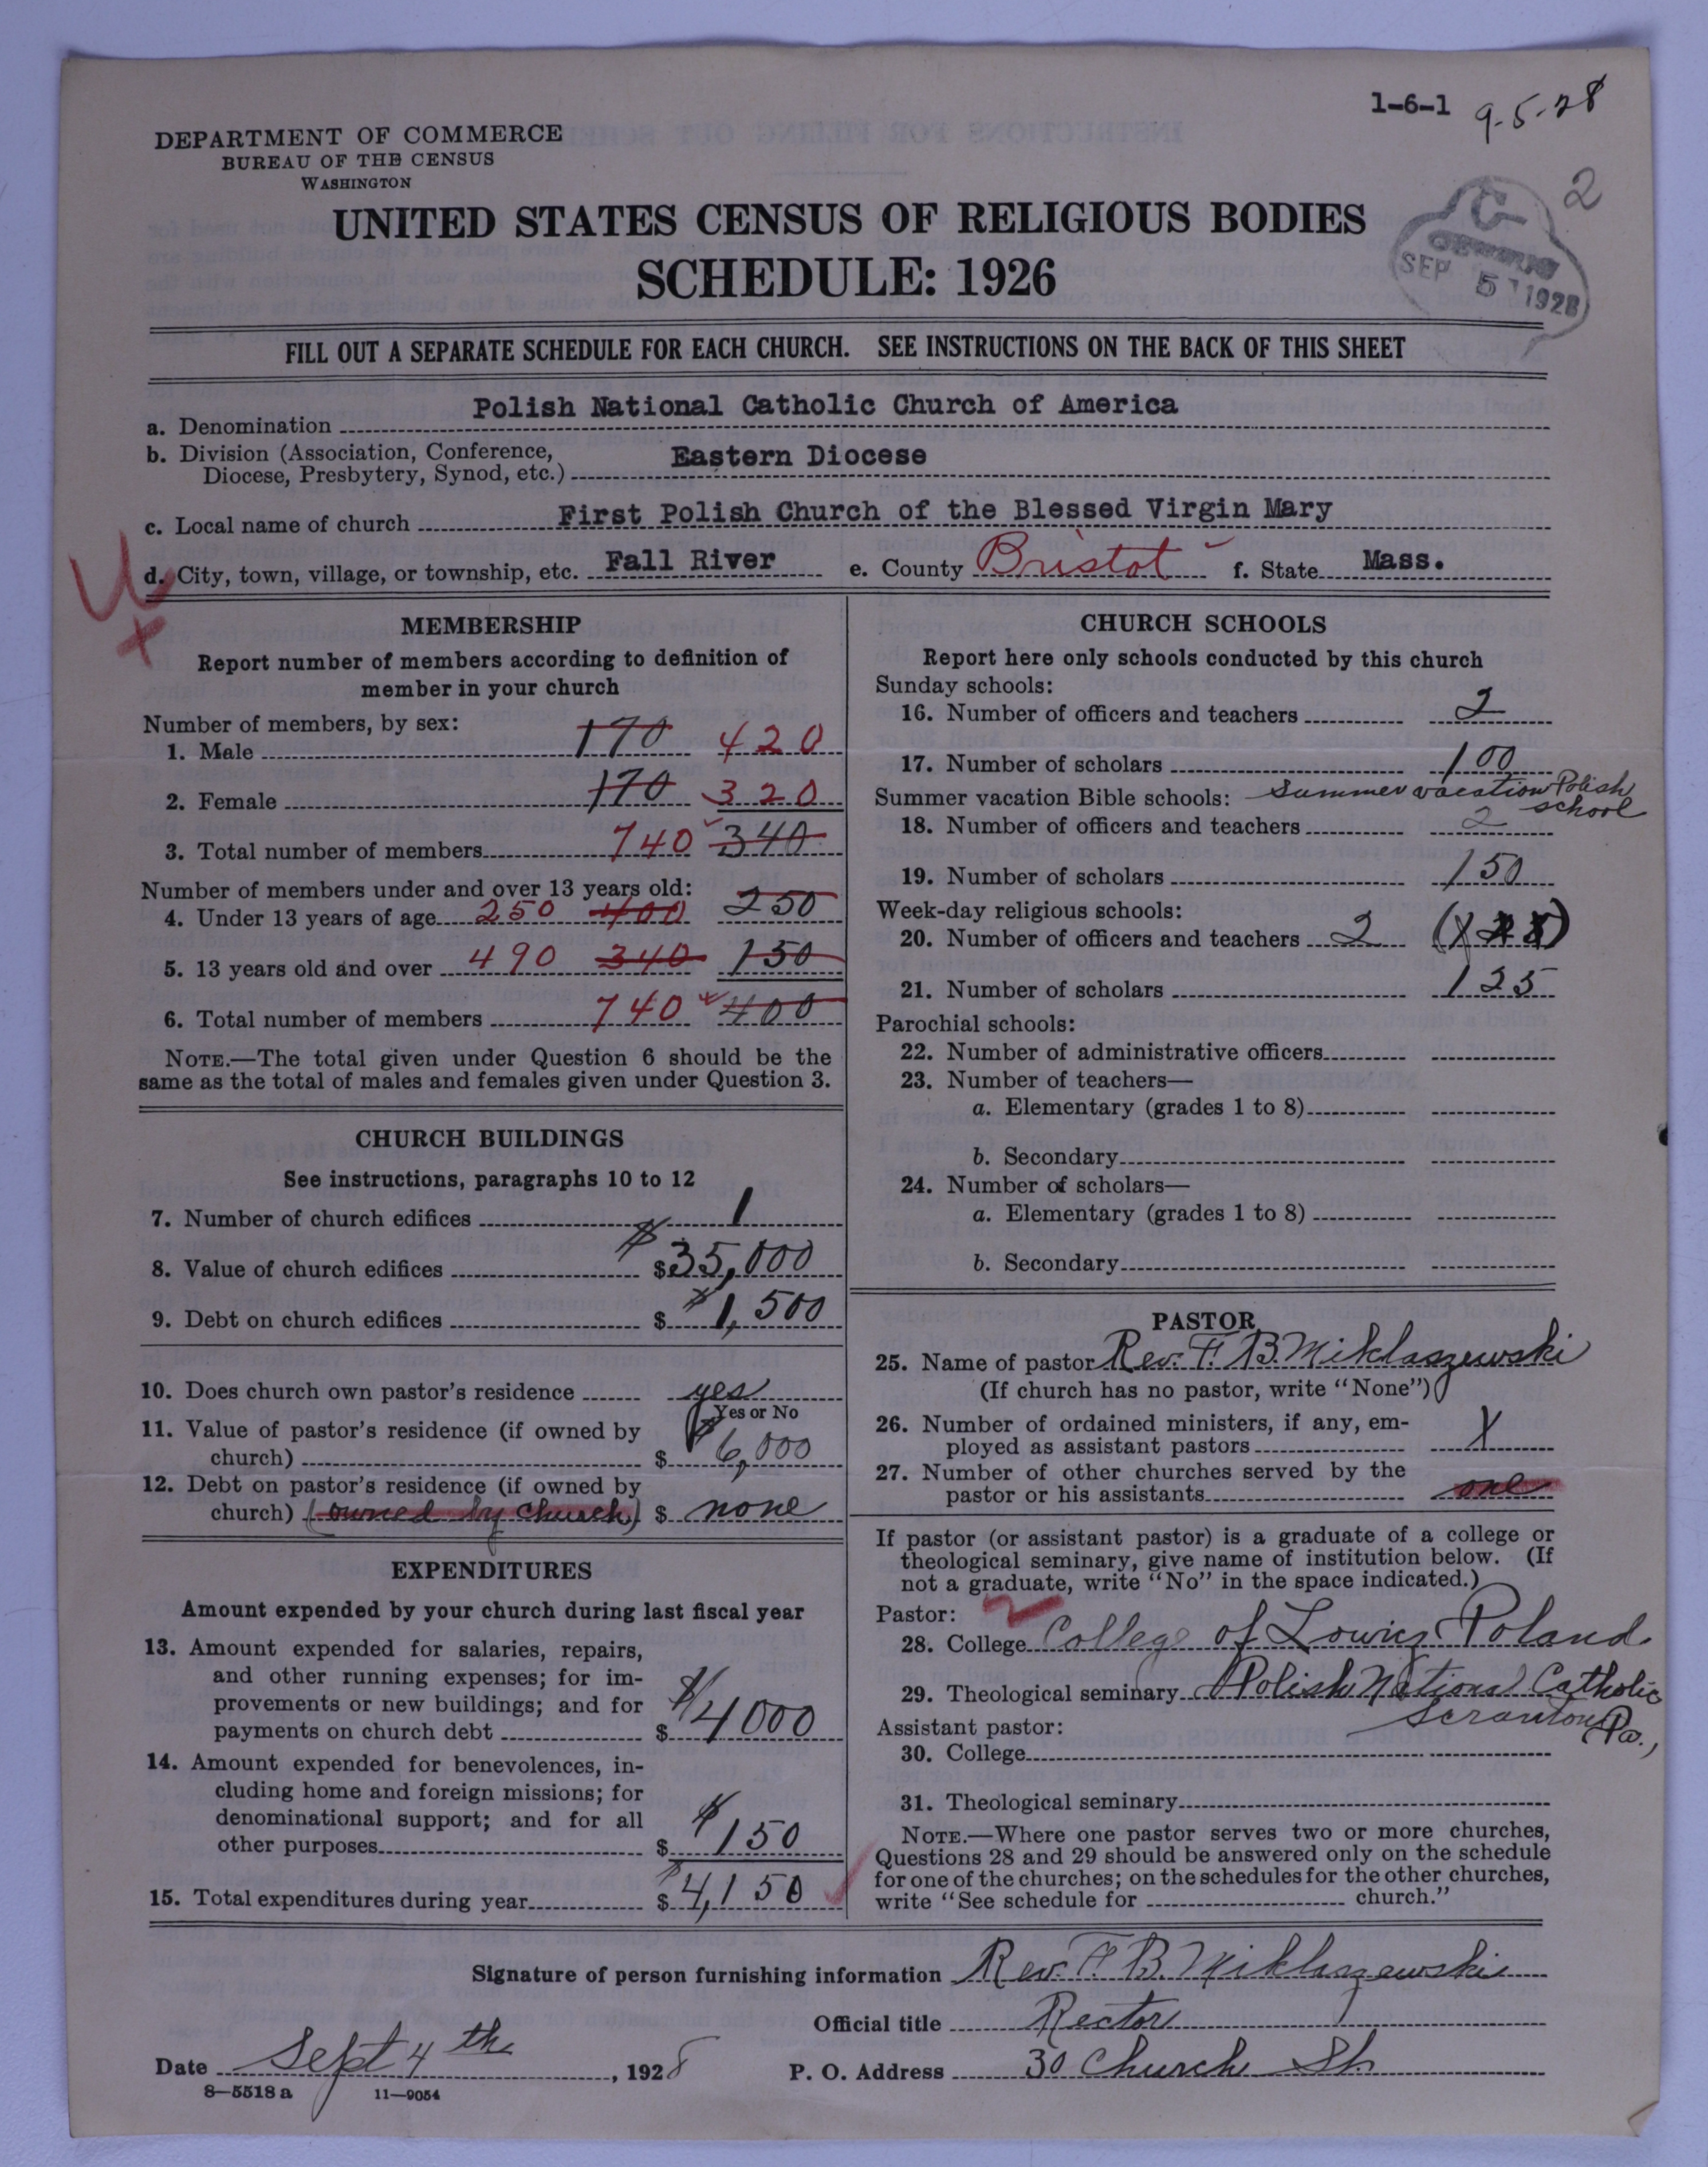 1-6-1 9-5-28
2
DEPARTMENT OF COMMERCE
BUREAU OF THE CENSUS
WASHINGTON
UNITED STATES CENSUS OF RELIGIOUS BODIES
SCHEDULE: 1926
C
CENSUS
SEP 5 1928
FILL OUT A SEPARATE SCHEDULE FOR EACH CHURCH. SEE INSTRUCTIONS ON THE BACK OF THIS SHEET
a. Denomination Polish National Catholic Church of America
b. Division (Association, Conference,
Diocese, Presbytery, Synod, etc.) Eastern Diocese
c. Local name of church First Polish Church of the Blessed Virgin Mary
d. City, town, village, or township, etc. Fall River e. County Bristol f. State Mass.
MEMBERSHIP
Report number of members according to definition of
member in your church
Number of members, by sex:
1. Male 170 420
2. Female 170 320
3. Total number of members 740 340
Number of members under and over 13 years old:
4. Under 13 years of age 250 400 250
5. 13 years old and over 490 340 150
6. Total number of members 740 400
NOTE.—The total given under Question 6 should be the
same as the total of males and females given under Question 3.
CHURCH BUILDINGS
See instructions, paragraphs 10 to 12
7. Number of church edifices 1
8. Value of church edifices $ $35,000
9. Debt on church edifices $ $1,500
10. Does church own pastor's residence yes
Yes or No
11. Value of pastor's residence (if owned by
church) $ $6,000
12. Debt on pastor's residence (if owned by
church) (owned by church) $ none
EXPENDITURES
Amount expended by your church during last fiscal year
13. Amount expended for salaries, repairs,
and other running expenses; for im-
provements or new buildings; and for
payments on church debt $ $4000
14. Amount expended for benevolences, in-
cluding home and foreign missions; for
denominational support; and for all
other purposes $ $150
15. Total expenditures during year $ $4,150
CHURCH SCHOOLS
Report here only schools conducted by this church
Sunday schools:
16. Number of officers and teachers 2
17. Number of scholars 100
Summer vacation Bible schools: Summer vacation Polish
school
18. Number of officers and teachers 2
19. Number of scholars 150
Week-day religious schools:
20. Number of officers and teachers 2
21. Number of scholars 125
Parochial schools:
22. Number of administrative officers
23. Number of teachers—
a. Elementary (grades 1 to 8)
b. Secondary
24. Number of scholars—
a. Elementary (grades 1 to 8)
b. Secondary
PASTOR
25. Name of pastor Rev. F. B. Miklaszewski
(If church has no pastor, write "None")
26. Number of ordained ministers, if any, em-
ployed as assistant pastors X
27. Number of other churches served by the
pastor or his assistants one
If pastor (or assistant pastor) is a graduate of a college or
theological seminary, give name of institution below. (If
not a graduate, write "No" in the space indicated.)
Pastor:
28. College College of Lowicz Poland
29. Theological seminary Polish National Catholic
Scranton Pa.,
Assistant pastor:
30. College
31. Theological seminary
NOTE.—Where one pastor serves two or more churches,
Questions 28 and 29 should be answered only on the schedule
for one of the churches; on the schedules for the other churches,
write "See schedule for church."
Signature of person furnishing information Rev. F. B. Miklaszewski
Official title Rector
Date Sept 4th, 1928 P. O. Address 30 Church St.
8—5518 a 11—9054